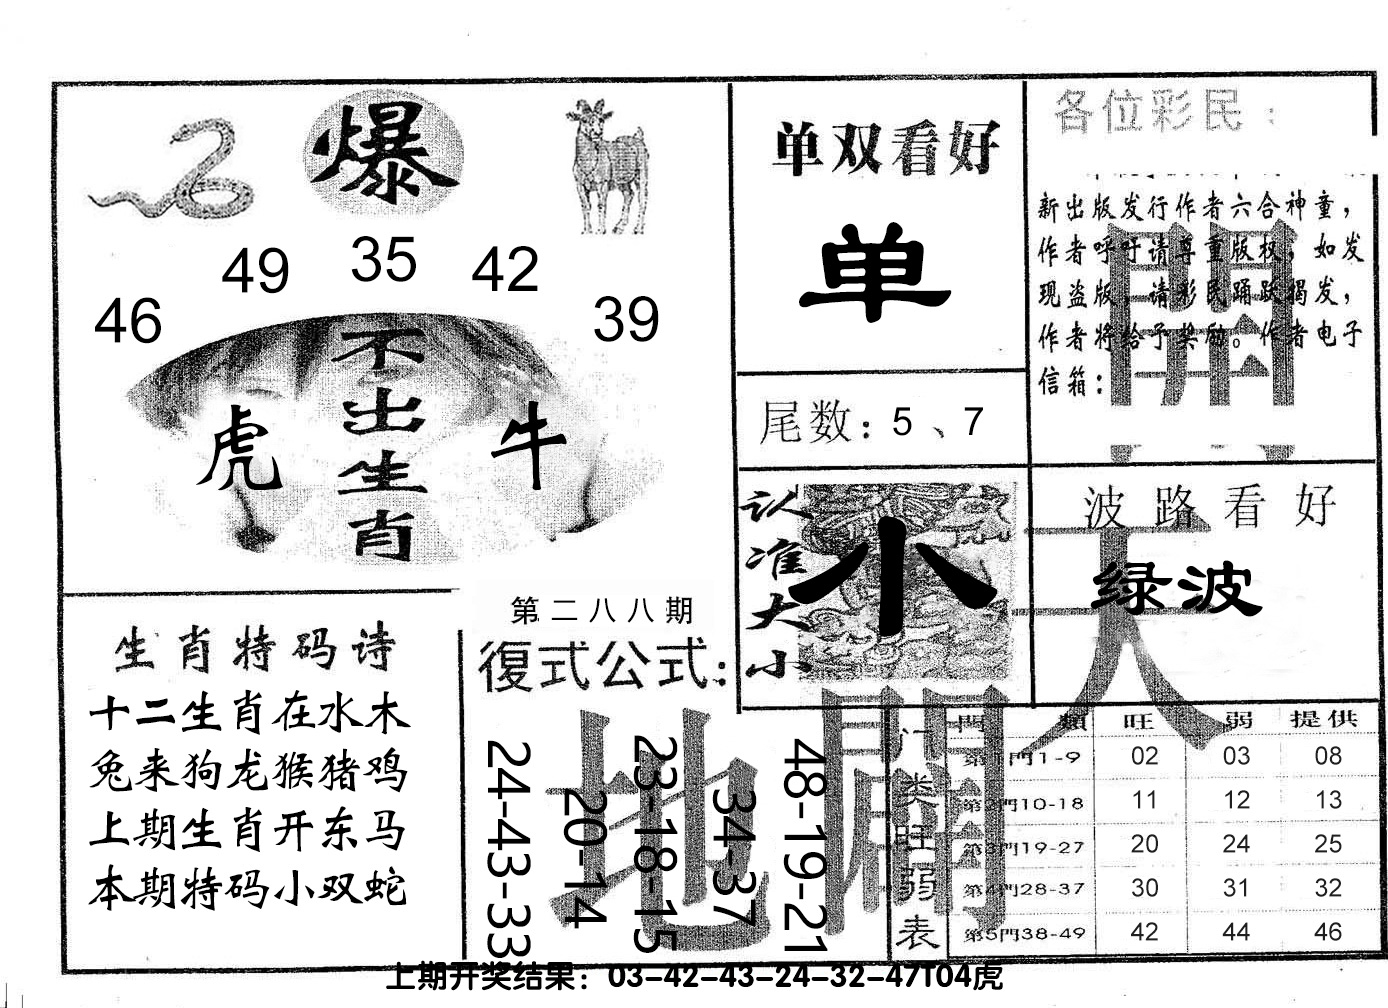 爆
49 35 42
46 39
不出生肖
虎 牛
单双看好
单
尾数：5、7
认准大小
小
各位彩民：
新出版发行作者六合神童，
作者呼吁请尊重版权，如发
现盗版，请彩民踊跃揭发，
作者将给予奖励。作者电子
信箱：
開
天
波路看好
绿波
生肖特码诗
十二生肖在水木
兔来狗龙猴猪鸡
上期生肖开东马
本期特码小双蛇
第二八八期
復式公式：
地
闢
24-43-33
20-14
23-18-15
34-37
48-19-21
门类旺弱表
門 類 旺 弱 提供
第1門1-9 02 03 08
第2門10-18 11 12 13
第3門19-27 20 24 25
第4門28-37 30 31 32
第5門38-49 42 44 46
上期开奖结果：03-42-43-24-32-47T04虎